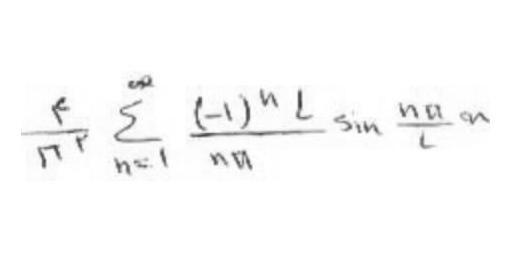 \frac{۴}{\pi^{۲}} \sum_{n=1}^{\infty} \frac{(-1)^n L}{n\pi} \sin \frac{n\pi}{L} x